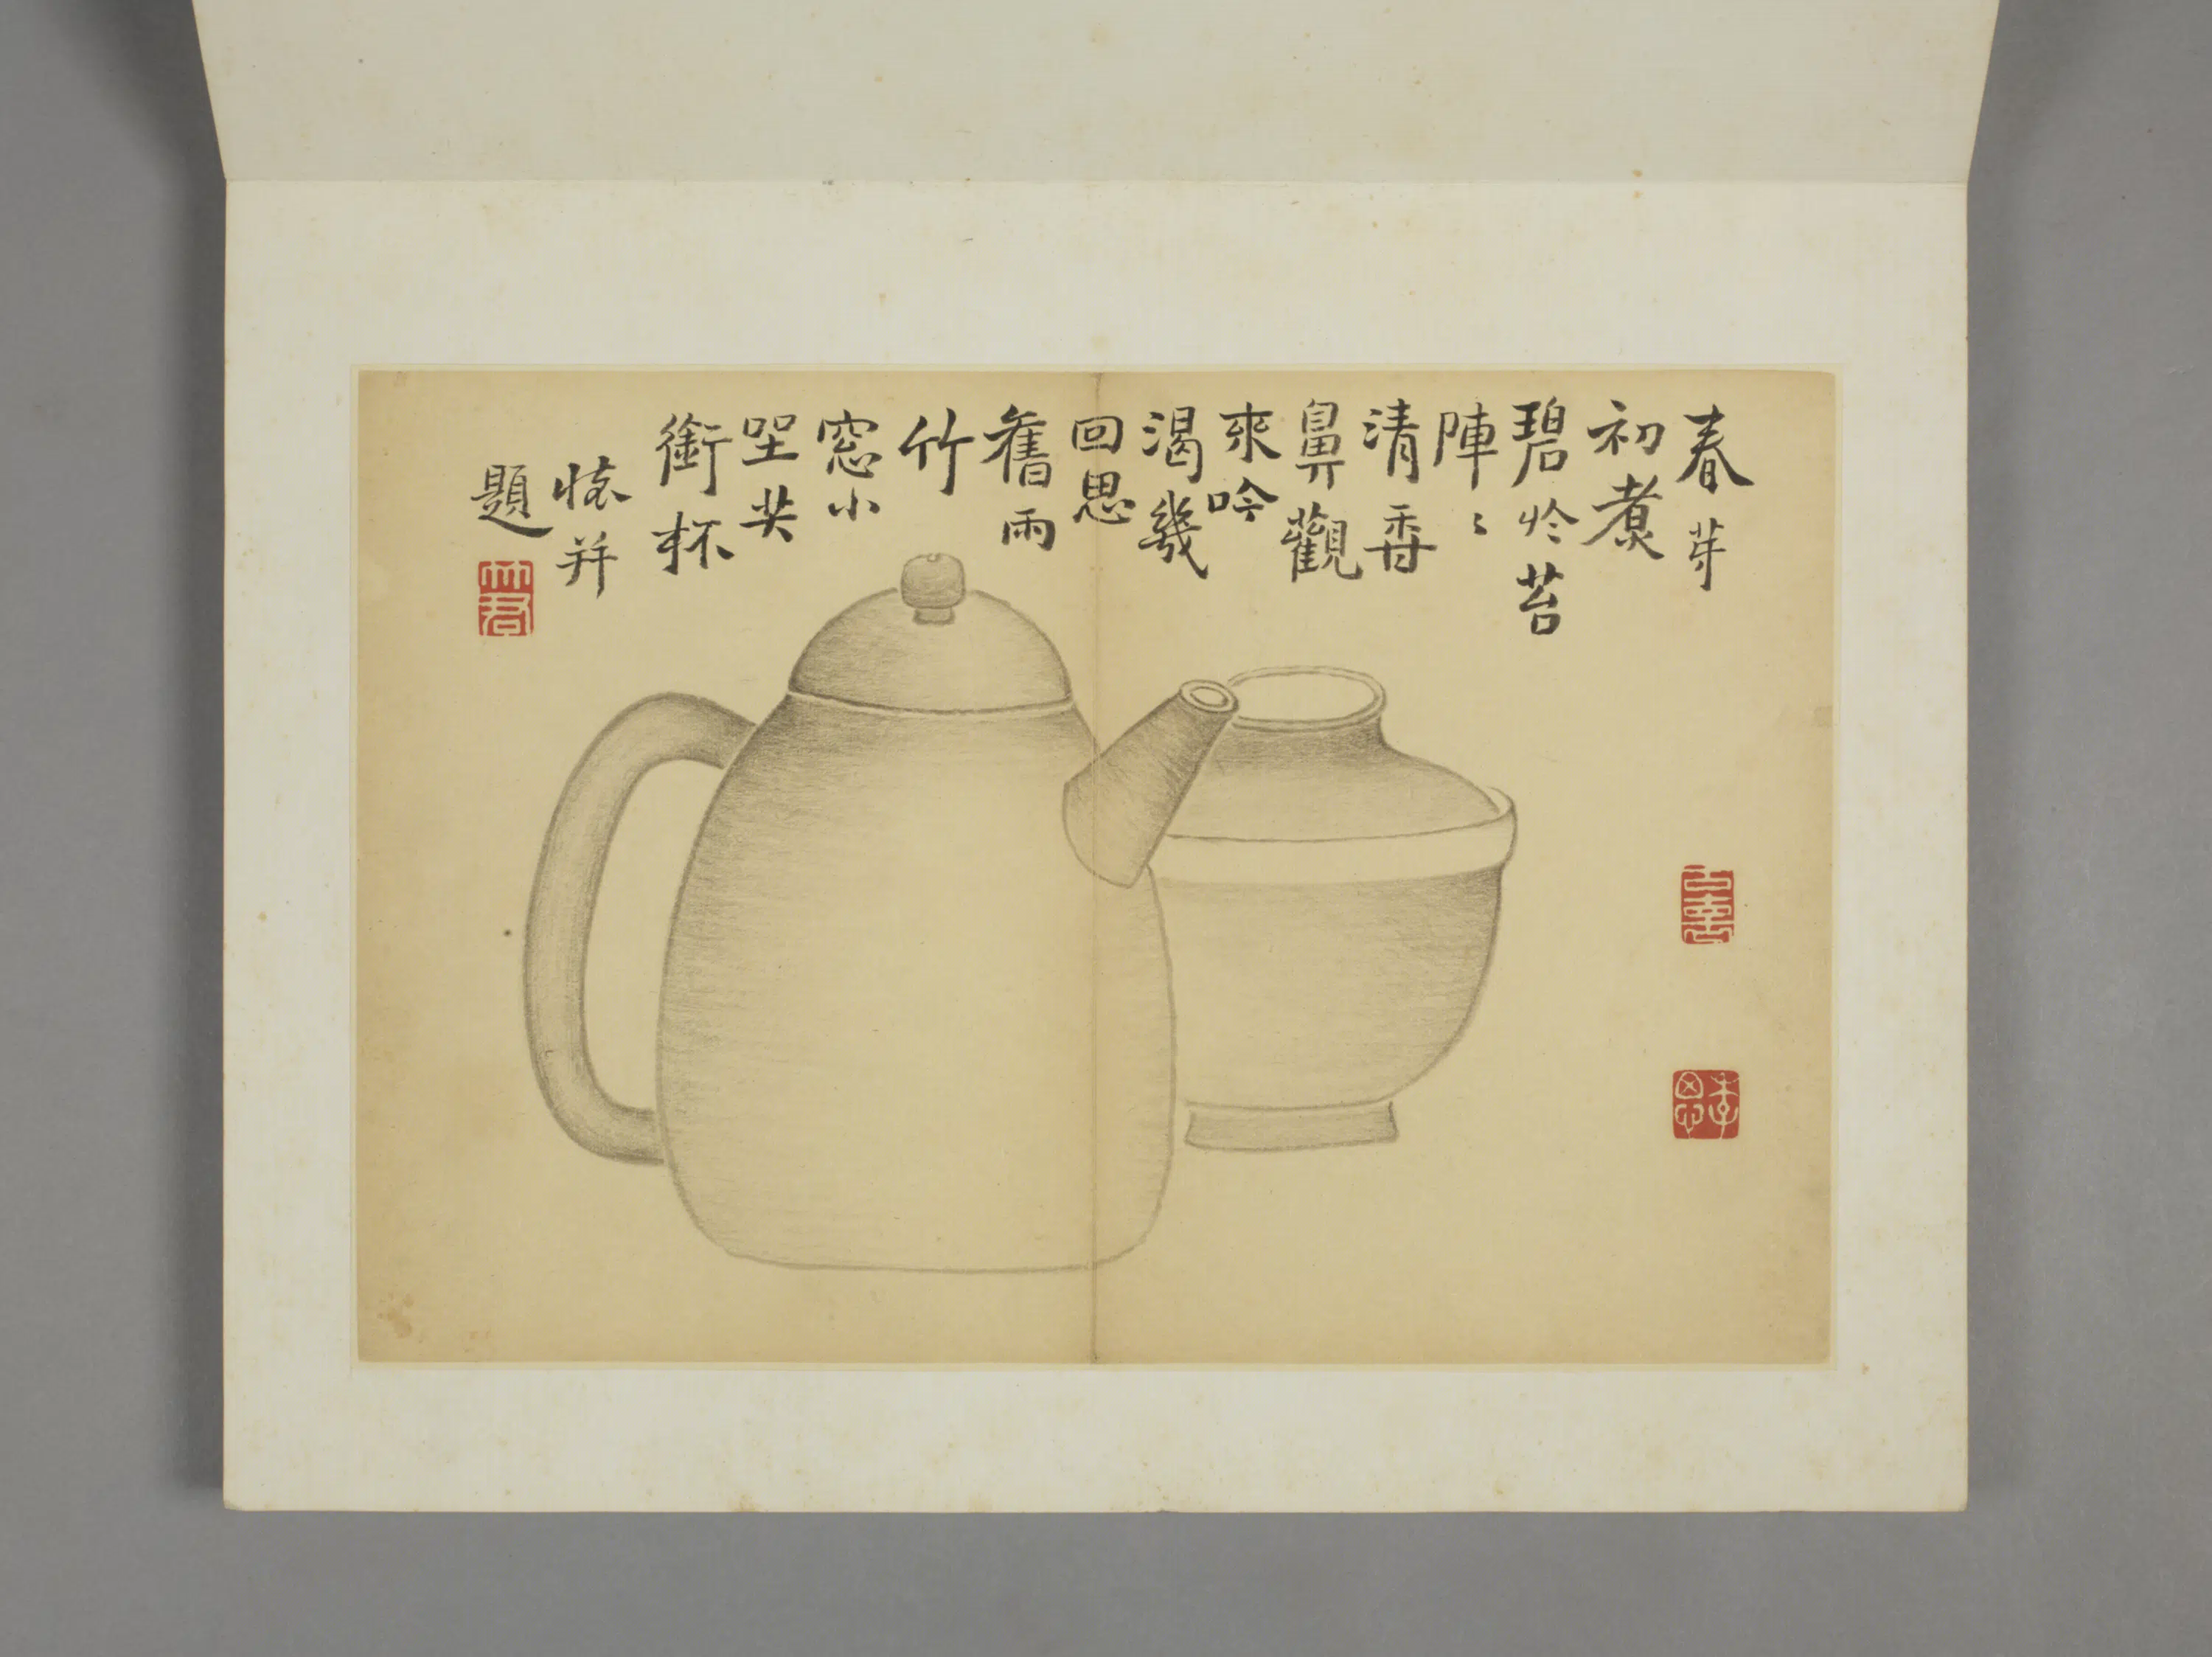 春芽
初煮
碧於苔
陣〻
清香
鼻觀
來吟
渴幾
回思
舊雨
竹
窓小
坐共
銜杯
并
題